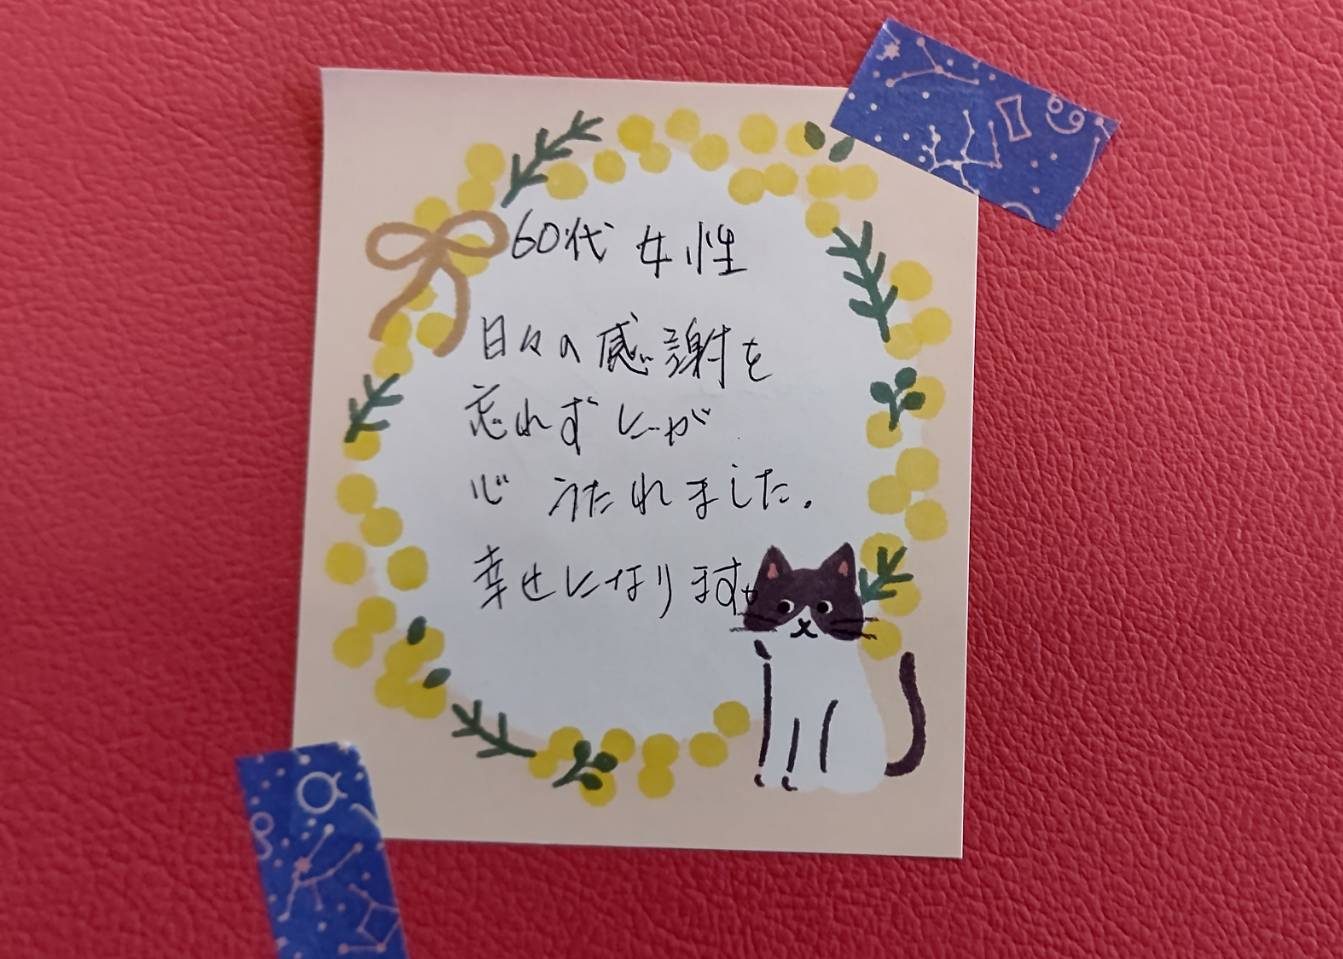 60代 女性
日々の感謝を
忘れずにが
心 うたれました。
幸せになります。